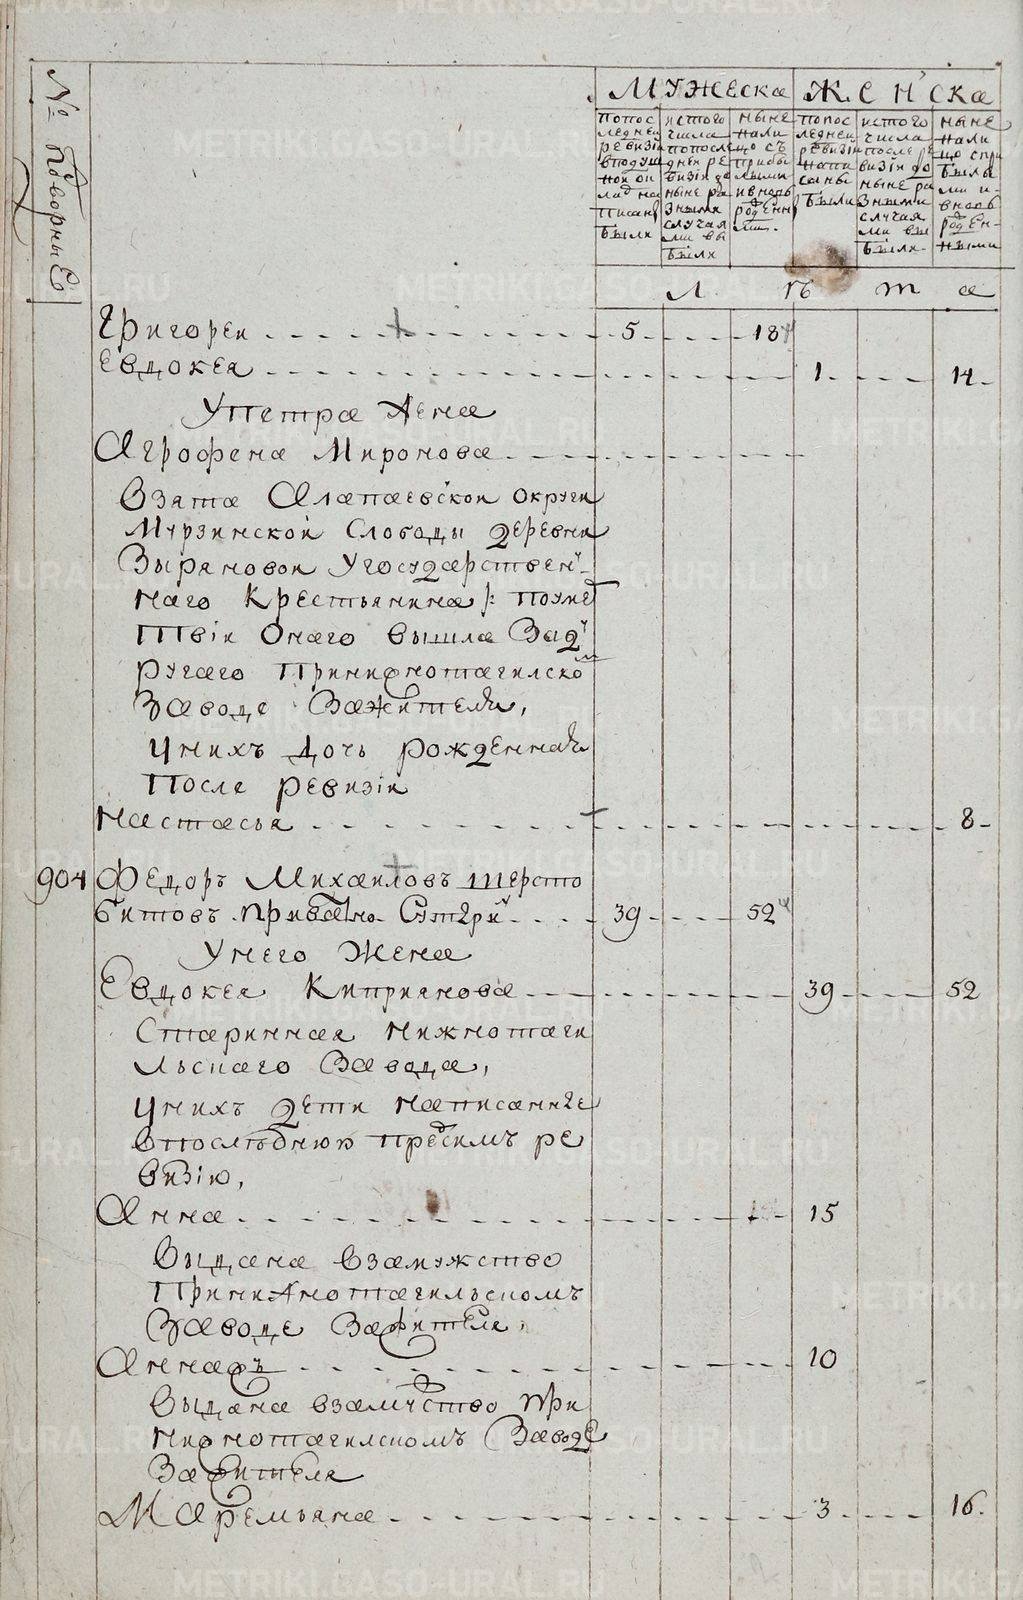 № Подворные
Мужеска Женска
попоследней ревизiи вподушной окладнаписаны были
истого числа попоследней ревизiи до ныне разными случаями выбыли
ныне налицо съ прибылыми ивновь рожденными
попоследней ревизiи написаны были
истого числа после ревизiи до ныне разными случаями выбыли
ныне налицо сприбылыми ивновь рожденными
Лѣта
Григореи 5 18
Евдокея 1 14
Упетра Жена
Агрофена Миронова
Взята Алапаевскои округи
Мурзинской Слободы деревни
Зыряновои Угосударствен
наго Крестьянина
Онаго вышла Зад
ругаго Принижнотагилско
Заводе Зажителя,
Унихъ Дочь рожденная
После ревизiи
Настасья 8
904 Федоръ Михаиловъ Шерсто
битовъ 39 52
Унего Жена
Евдокея Киприянова 39 52
Старинная Нижнотаги
льскаго Завода,
Унихъ дети написанные
впослѣднюю предсимъ ре
визiю,
Анна 15
Выдана Взамужство
Принижнотагильскомъ
Заводе Зажителя,
Анна 10
Выдана взамуство при
нижнотагилскомъ Заводе
Зажителя
Маремьяна 3 16.
METRIKI.GASO-URAL.RU